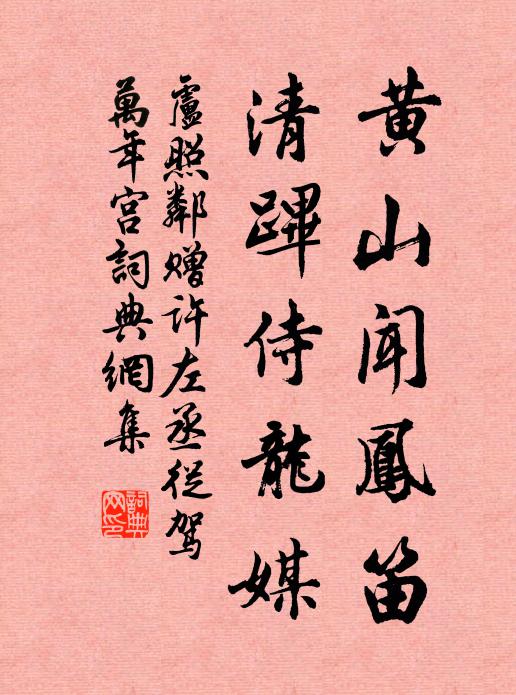 黄山闻鳳笛
清蹕侍龍媒
盧照鄰赠许左丞從駕
萬年宫詞典網集
詞典网印